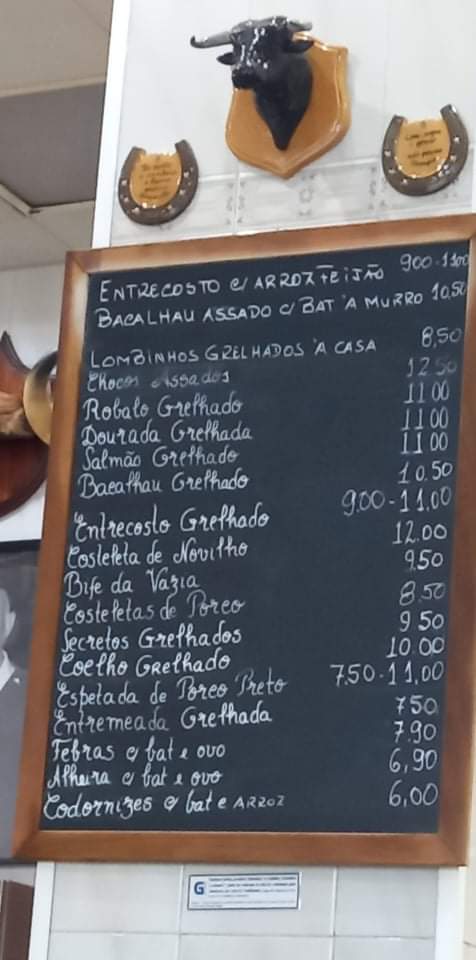 ENTRECOSTO C/ ARROZ FEIJÃO 900-1100
BACALHAU ASSADO C/ BAT À MURRO 10,50
LOMBINHOS GRELHADOS À CASA 8,50
Chocos Assados 12.50
Robalo Grelhado 11 00
Dourada Grelhada 11 00
Salmão Grelhado 11 00
Bacalhau Grelhado 10.50
Entrecosto Grelhado 9.00-11,00
Costeleta de Novilho 12.00
Bife da Vazia 9.50
Costeletas de Porco 8.50
Secretos Grelhados 9 50
Coelho Grelhado 10 00
Espetada de Porco Preto 750-11,00
Entremeada Grelhada 750
Febras c/ bat e ovo 7.90
Alheira c/ bat e ovo 6,90
Codornizes c/ bat e ARROZ 6,00
G